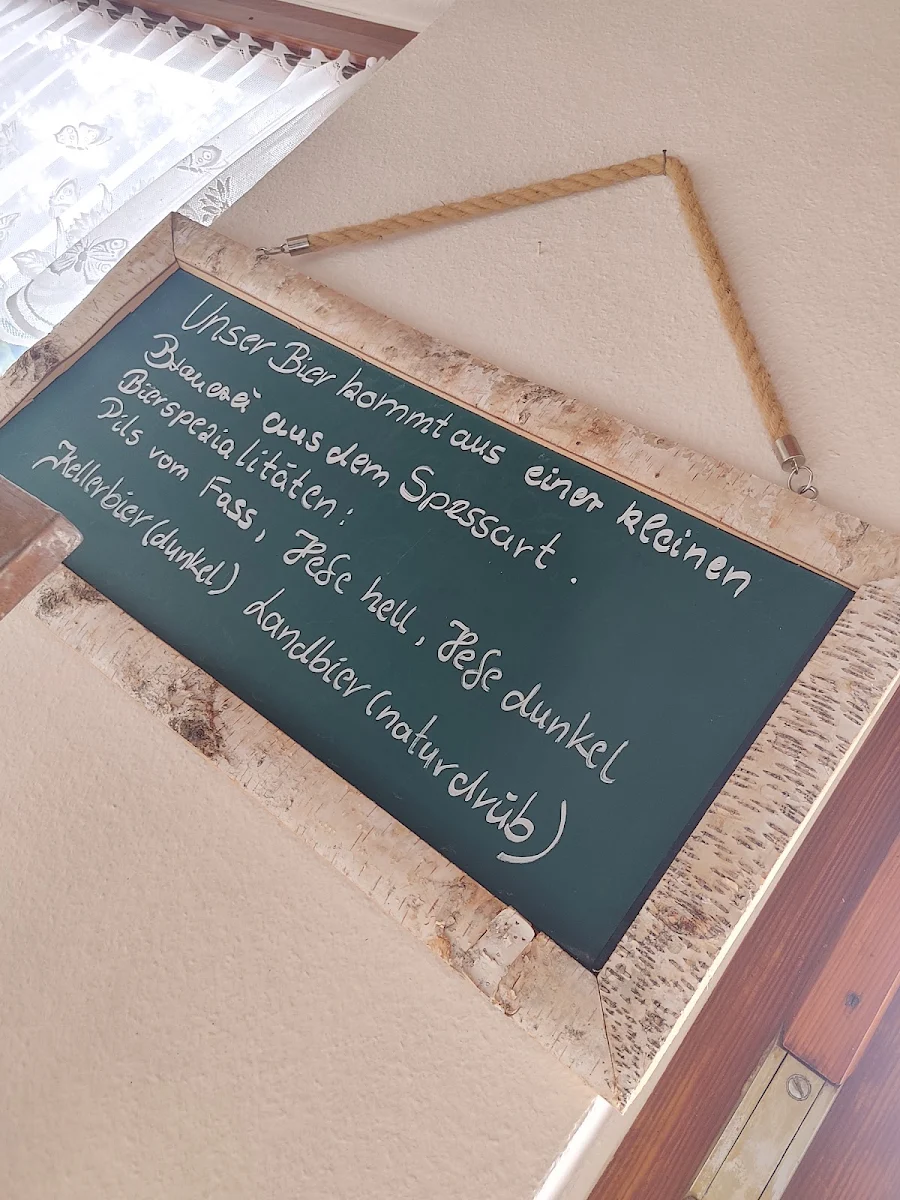 Unser Bier kommt aus einer kleinen
Brauerei aus dem Spessart.
Bierspezialitäten:
Pils vom Fass, Hefe hell, Hefe dunkel
Kellerbier (dunkel) Landbier (naturdrüb)